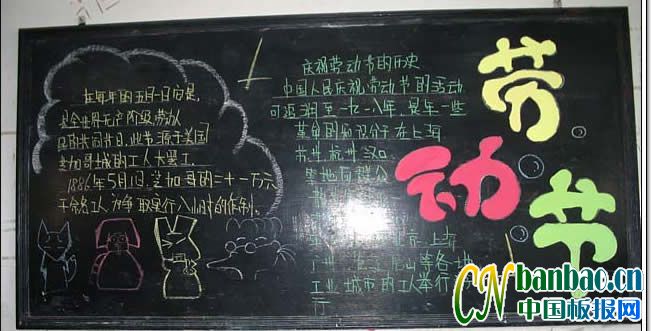 在每年的五月一日是,
是全世界无产阶级、劳动人
民的共同节日,此节源于美国
芝加哥城的工人大罢工
1886年5月1日,芝加哥的二十一万六
千余名工人为争取实行八小时工作制
庆祝劳动节的历史
中国人民庆祝劳动节的活动
可追溯至一九一八年,是年一些
革命的知识分子在上海
苏州、杭州、汉口
等地向群众
北京、上海
等各地
工业城市的工人举行
行
劳动节
CN banbao.cn
中国板报网